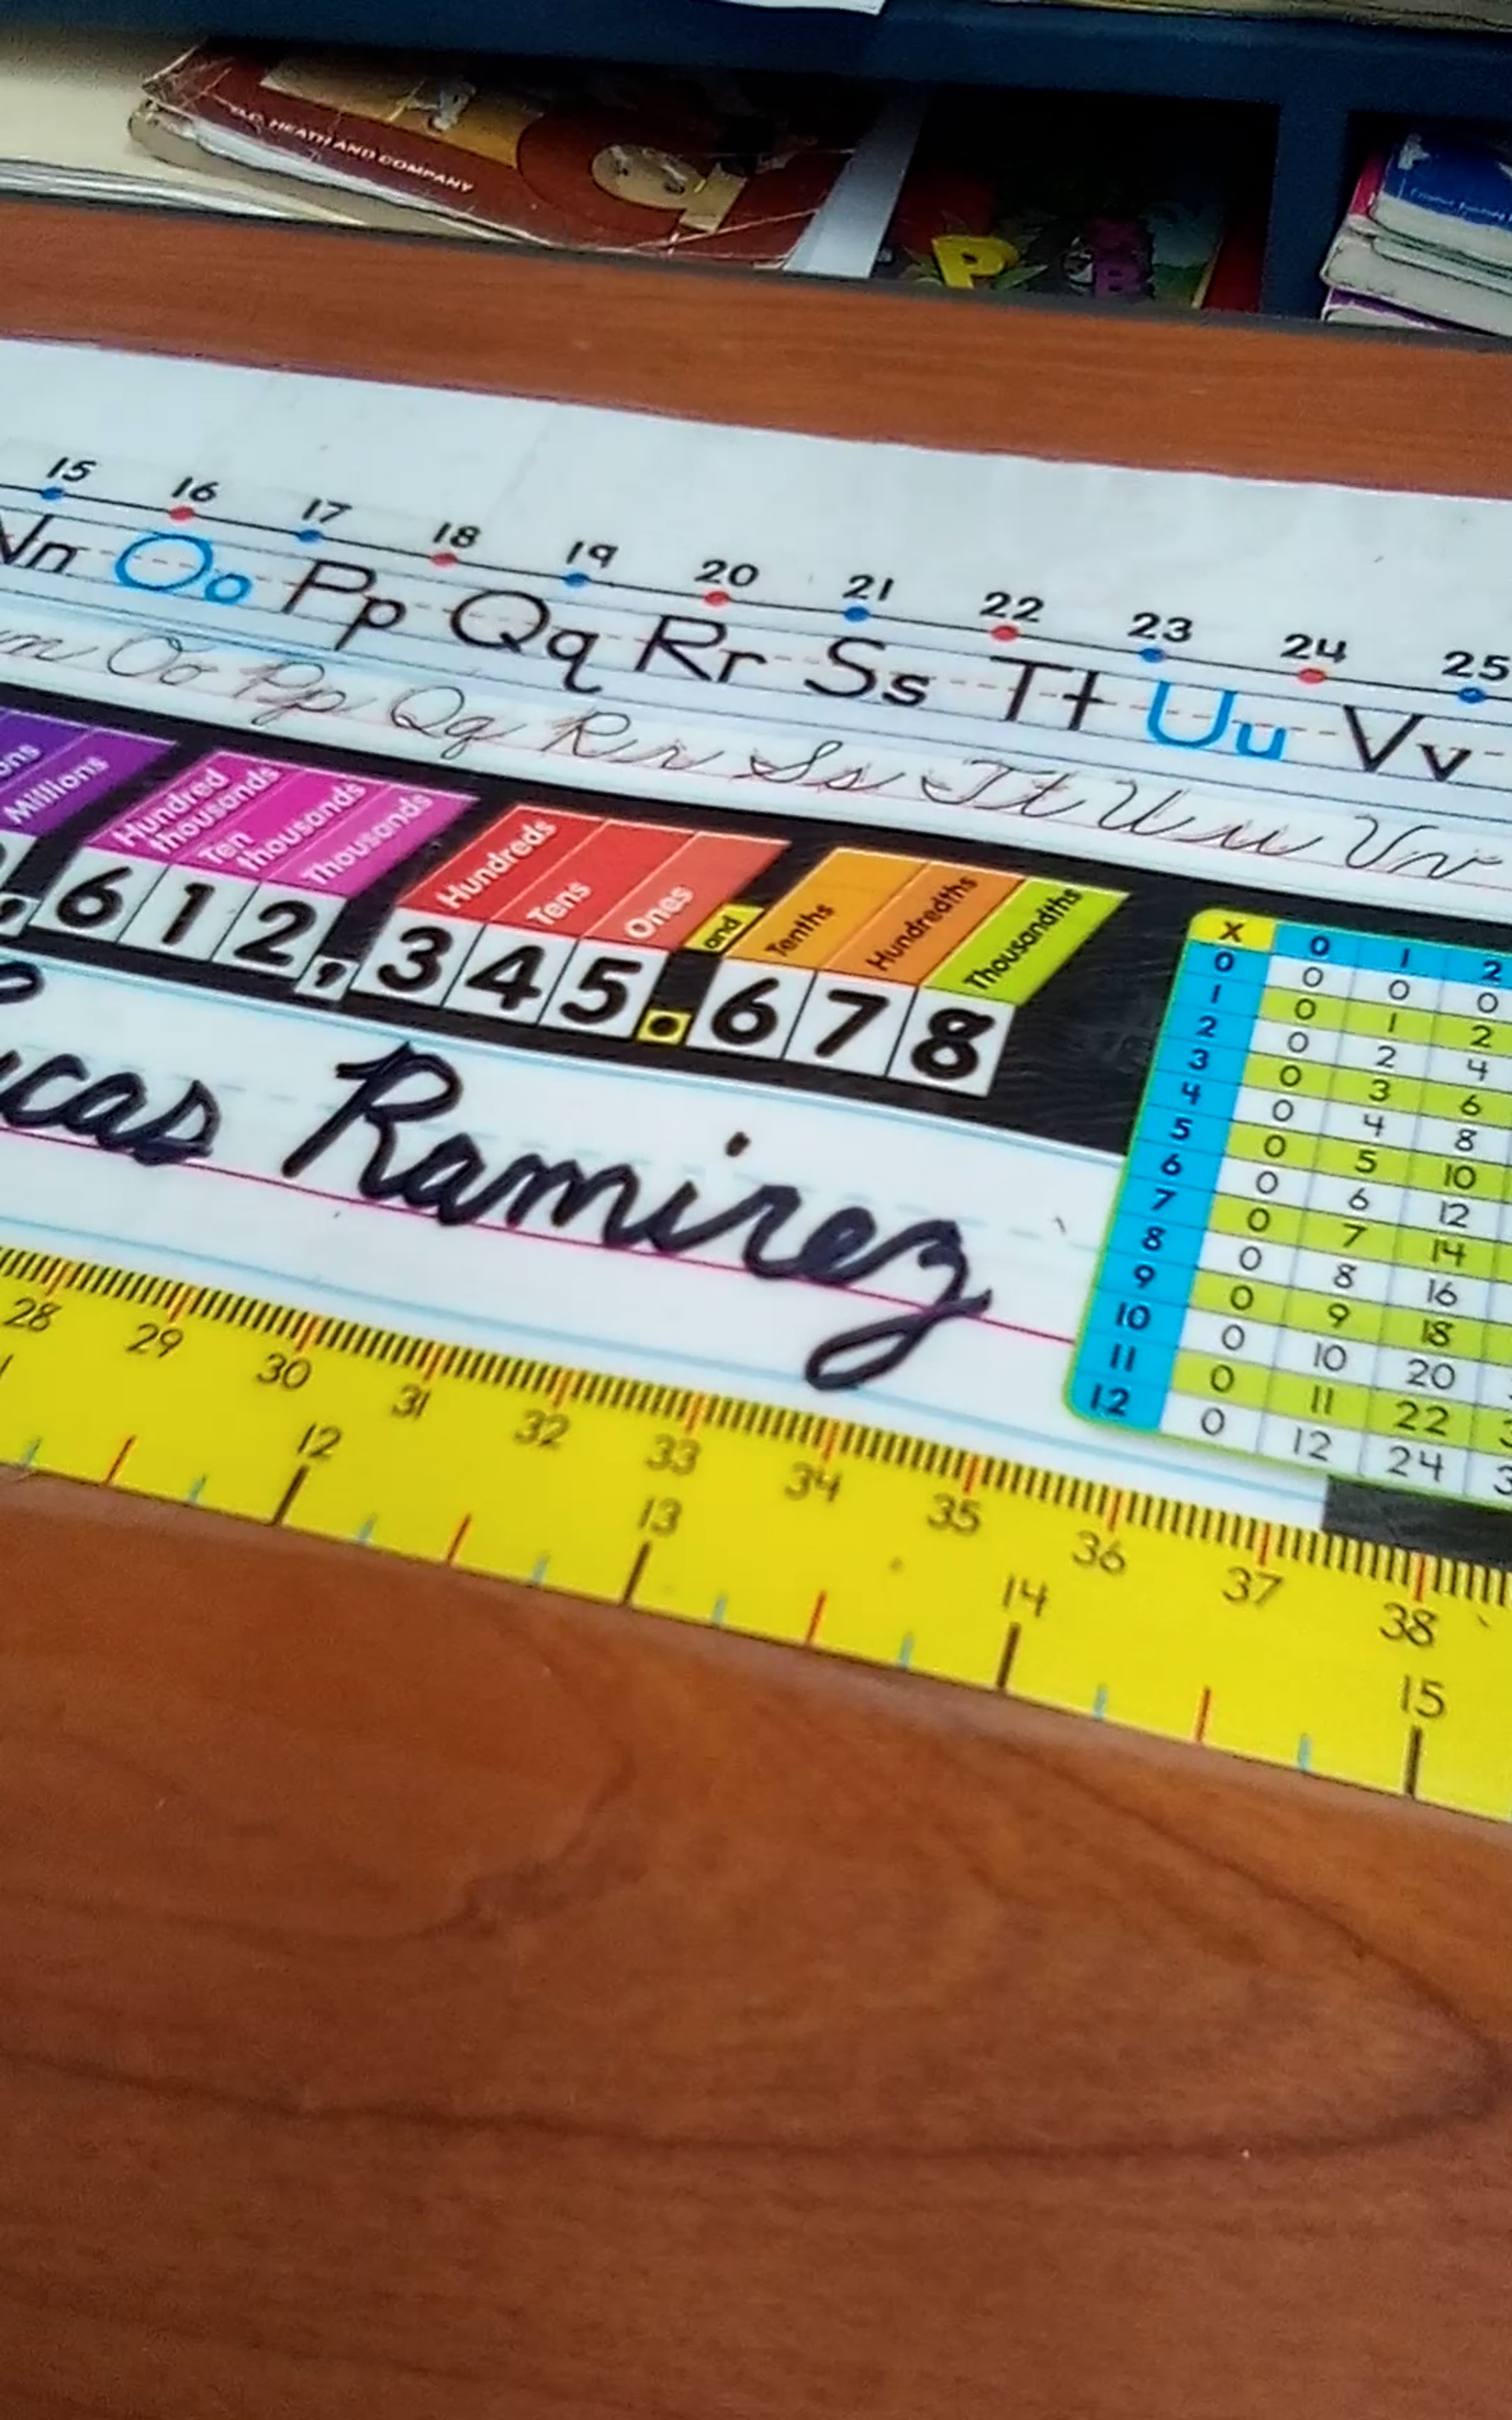 D.C. HEATH AND COMPANY
P B
15 16 17 18 19 20 21 22 23 24 25
Nn Oo Pp Qq Rr Ss Tt Uu Vv
Oo Pp Qq Rr Ss Tt Uu Vv
Millions Hundred thousands Ten thousands Thousands Hundreds Tens Ones and Tenths Hundredths Thousandths
,612,345.678
ucas Ramirez
X 0 1 2
0 0 0 0
1 0 1 2
2 0 2 4
3 0 3 6
4 0 4 8
5 0 5 10
6 0 6 12
7 0 7 14
8 0 8 16
9 0 9 18
10 0 10 20
11 0 11 22
12 0 12 24
28 29 30 31 32 33 34 35 36 37 38
12 13 14 15